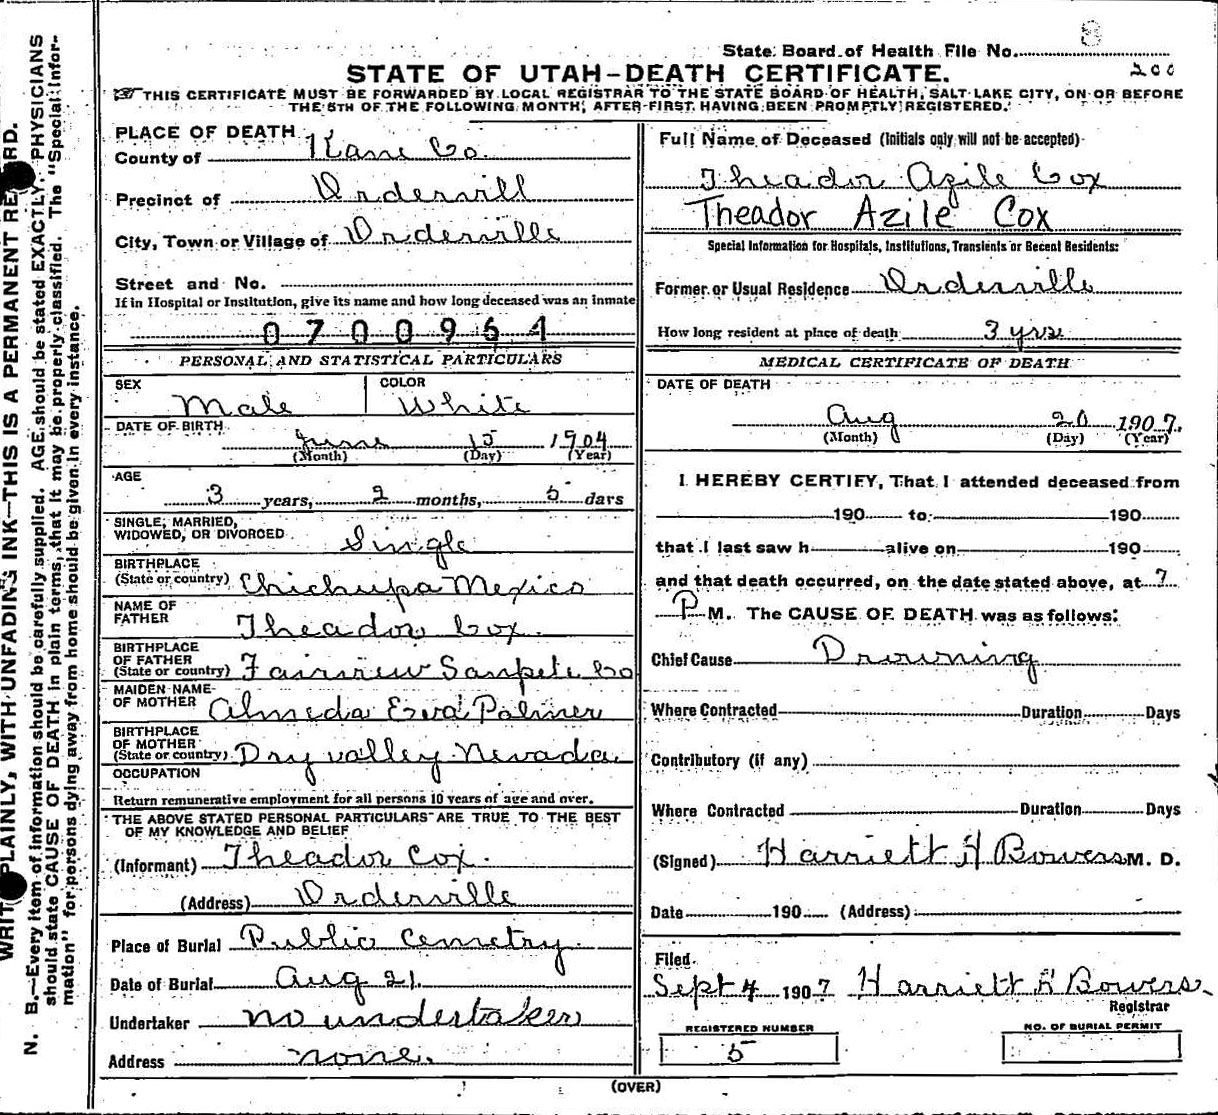 State Board of Health File No. 8
200
STATE OF UTAH–DEATH CERTIFICATE.
THIS CERTIFICATE MUST BE FORWARDED BY LOCAL REGISTRAR TO THE STATE BOARD OF HEALTH, SALT LAKE CITY, ON OR BEFORE
THE 5TH OF THE FOLLOWING MONTH, AFTER FIRST HAVING BEEN PROMPTLY REGISTERED.
WRITE PLAINLY, WITH UNFADING INK—THIS IS A PERMANENT RECORD.
N. B.—Every item of information should be carefully supplied. AGE should be stated EXACTLY. PHYSICIANS
should state CAUSE OF DEATH in plain terms, that it may be properly classified. The "Special Infor-
mation" for persons dying away from home should be given in every instance.
PLACE OF DEATH
County of Kane Co.
Precinct of Ordervill
City, Town or Village of Orderville
Street and No.
If in Hospital or Institution, give its name and how long deceased was an inmate
0700964
PERSONAL AND STATISTICAL PARTICULARS
SEX Male
COLOR White
DATE OF BIRTH
June 15 1904
(Month) (Day) (Year)
AGE
3 years, 2 months, 5 days
SINGLE, MARRIED,
WIDOWED, OR DIVORCED Single
BIRTHPLACE
(State or country) Chichupa Mexico
NAME OF
FATHER Theador Cox.
BIRTHPLACE
OF FATHER
(State or country) Fairview Sanpete Co
MAIDEN NAME
OF MOTHER Almeda Eva Palmer
BIRTHPLACE
OF MOTHER
(State or country) Dry valley Nevada
OCCUPATION
Return remunerative employment for all persons 10 years of age and over.
THE ABOVE STATED PERSONAL PARTICULARS ARE TRUE TO THE BEST
OF MY KNOWLEDGE AND BELIEF
(Informant) Theador Cox.
(Address) Orderville
Place of Burial Public Cemetry
Date of Burial Aug 21.
Undertaker no undertaker
Address none.
Full Name of Deceased (Initials only will not be accepted)
Theador Azile Cox
Theador Azile Cox
Special Information for Hospitals, Institutions, Transients or Recent Residents:
Former or Usual Residence Orderville
How long resident at place of death 3 yrs
MEDICAL CERTIFICATE OF DEATH
DATE OF DEATH
Aug 20 1907.
(Month) (Day) (Year)
I HEREBY CERTIFY, That I attended deceased from
190 to 190
that I last saw h alive on 190
and that death occurred, on the date stated above, at 7
P M. The CAUSE OF DEATH was as follows:
Chief Cause Drowning
Where Contracted Duration Days
Contributory (if any)
Where Contracted Duration Days
(Signed) Harriett H Bowers M. D.
Date 190 (Address)
Filed
Sept 4 1907 Harriett H Bowers
Registrar
REGISTERED NUMBER
5
NO. OF BURIAL PERMIT
(OVER)